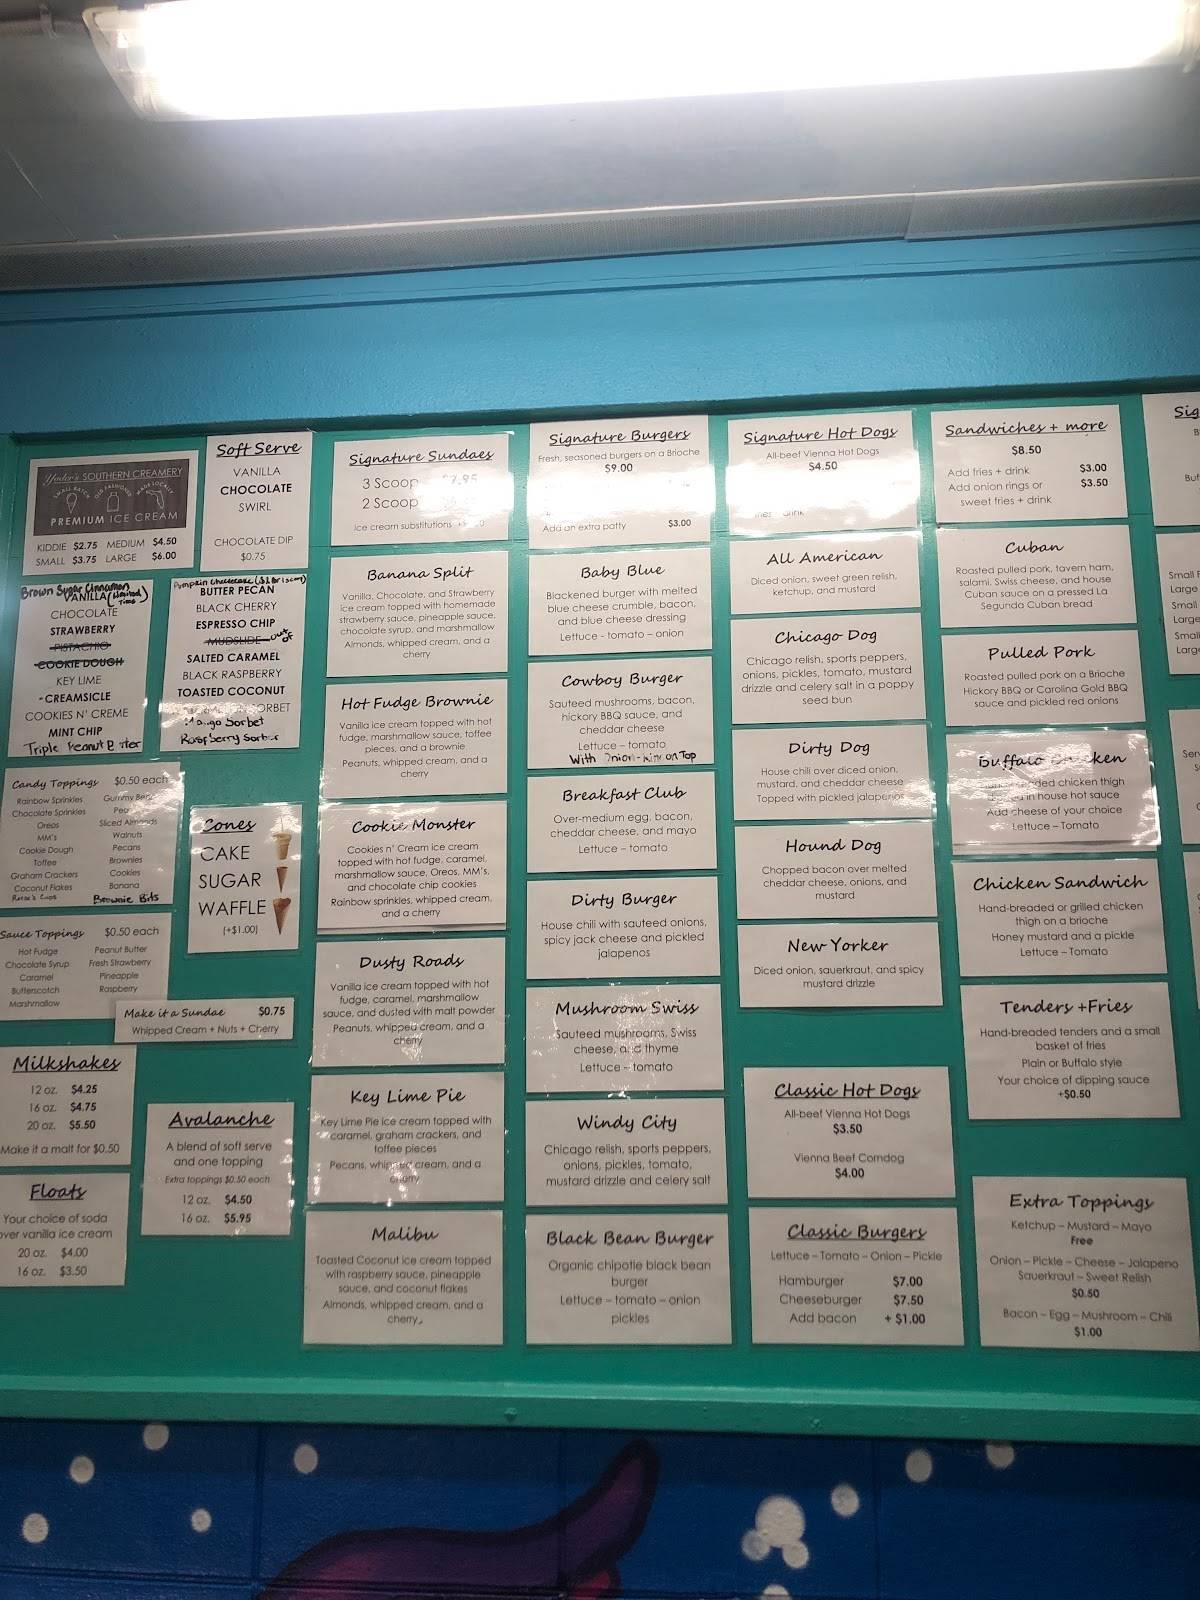 Yoder's SOUTHERN CREAMERY
SMALL BATCH OLD FASHIONED MADE LOCALLY
PREMIUM ICE CREAM
KIDDIE $2.75 MEDIUM $4.50
SMALL $3.75 LARGE $6.00
Brown Sugar Cinnamon
VANILLA (limited Time)
CHOCOLATE
STRAWBERRY
PISTACHIO
COOKIE DOUGH
KEY LIME
CREAMSICLE
COOKIES N' CREME
MINT CHIP
Triple Peanut Butter
Candy Toppings $0.50 each
Rainbow Sprinkles
Chocolate Sprinkles
Oreos
MM's
Cookie Dough
Toffee
Graham Crackers
Coconut Flakes
Reese's Cups
Gummy Bears
Sliced Almonds
Walnuts
Pecans
Brownies
Cookies
Banana
Brownie Bits
Sauce Toppings $0.50 each
Hot Fudge
Chocolate Syrup
Caramel
Butterscotch
Marshmallow
Peanut Butter
Fresh Strawberry
Pineapple
Raspberry
Make it a Sundae $0.75
Whipped Cream + Nuts + Cherry
Milkshakes
12 oz. $4.25
16 oz. $4.75
20 oz. $5.50
Make it a malt for $0.50
Floats
Your choice of soda
over vanilla ice cream
20 oz. $4.00
16 oz. $3.50
Soft Serve
VANILLA
CHOCOLATE
SWIRL
CHOCOLATE DIP
$0.75
Pumpkin Cheesecake
BUTTER PECAN
BLACK CHERRY
ESPRESSO CHIP
MUDSLIDE out of
SALTED CARAMEL
BLACK RASPBERRY
TOASTED COCONUT
SORBET
Mango Sorbet
Raspberry Sorbet
Cones
CAKE
SUGAR
WAFFLE
(+$1.00)
Avalanche
A blend of soft serve
and one topping
Extra toppings $0.50 each
12 oz. $4.50
16 oz. $5.95
Signature Sundaes
3 Scoop
2 Scoop
Ice cream substitutions
Banana Split
Vanilla, Chocolate, and Strawberry
ice cream topped with homemade
strawberry sauce, pineapple sauce,
chocolate syrup, and marshmallow
Almonds, whipped cream, and a
cherry
Hot Fudge Brownie
Vanilla ice cream topped with hot
fudge, marshmallow sauce, toffee
pieces, and a brownie
Peanuts, whipped cream, and a
cherry
Cookie Monster
Cookies n' Cream ice cream
topped with hot fudge, caramel,
marshmallow sauce, Oreos, MM's,
and chocolate chip cookies
Rainbow sprinkles, whipped cream,
and a cherry
Dusty Roads
Vanilla ice cream topped with hot
fudge, caramel, marshmallow
sauce, and dusted with malt powder
Peanuts, whipped cream, and a
cherry
Key Lime Pie
Key Lime Pie ice cream topped with
caramel, graham crackers, and
toffee pieces
Pecans, whipped cream, and a
cherry
Malibu
Toasted Coconut ice cream topped
with raspberry sauce, pineapple
sauce, and coconut flakes
Almonds, whipped cream, and a
cherry
Signature Burgers
Fresh, seasoned burgers on a Brioche
$9.00
Add an extra patty $3.00
Baby Blue
Blackened burger with melted
blue cheese crumble, bacon,
and blue cheese dressing
Lettuce - tomato – onion
Cowboy Burger
Sauteed mushrooms, bacon,
hickory BBQ sauce, and
cheddar cheese
Lettuce – tomato
With Onion-Ring on Top
Breakfast Club
Over-medium egg, bacon,
cheddar cheese, and mayo
Lettuce – tomato
Dirty Burger
House chili with sauteed onions,
spicy jack cheese and pickled
jalapenos
Mushroom Swiss
Sauteed mushrooms, Swiss
cheese, and thyme
Lettuce – tomato
Windy City
Chicago relish, sports peppers,
onions, pickles, tomato,
mustard drizzle and celery salt
Black Bean Burger
Organic chipotle black bean
burger
Lettuce – tomato – onion
pickles
Signature Hot Dogs
All-beef Vienna Hot Dogs
$4.50
fries drink
All American
Diced onion, sweet green relish,
ketchup, and mustard
Chicago Dog
Chicago relish, sports peppers,
onions, pickles, tomato, mustard
drizzle and celery salt in a poppy
seed bun
Dirty Dog
House chili over diced onion,
mustard, and cheddar cheese
Topped with pickled jalapenos
Hound Dog
Chopped bacon over melted
cheddar cheese, onions, and
mustard
New Yorker
Diced onion, sauerkraut, and spicy
mustard drizzle
Classic Hot Dogs
All-beef Vienna Hot Dogs
$3.50
Vienna Beef Corndog
$4.00
Classic Burgers
Lettuce – Tomato – Onion – Pickle
Hamburger $7.00
Cheeseburger $7.50
Add bacon + $1.00
Sandwiches + more
$8.50
Add fries + drink $3.00
Add onion rings or $3.50
sweet fries + drink
Cuban
Roasted pulled pork, tavern ham,
salami, Swiss cheese, and house
Cuban sauce on a pressed La
Segunda Cuban bread
Pulled Pork
Roasted pulled pork on a Brioche
Hickory BBQ or Carolina Gold BBQ
sauce and pickled red onions
Buffalo Chicken
chicken thigh
in house hot sauce
Add cheese of your choice
Lettuce – Tomato
Chicken Sandwich
Hand-breaded or grilled chicken
thigh on a brioche
Honey mustard and a pickle
Lettuce – Tomato
Tenders +Fries
Hand-breaded tenders and a small
basket of fries
Plain or Buffalo style
Your choice of dipping sauce
+$0.50
Extra Toppings
Ketchup – Mustard – Mayo
Free
Onion – Pickle – Cheese – Jalapeno
Sauerkraut – Sweet Relish
$0.50
Bacon – Egg – Mushroom – Chili
$1.00
Sig
But
Small
Large
Small
Large
Small
Large